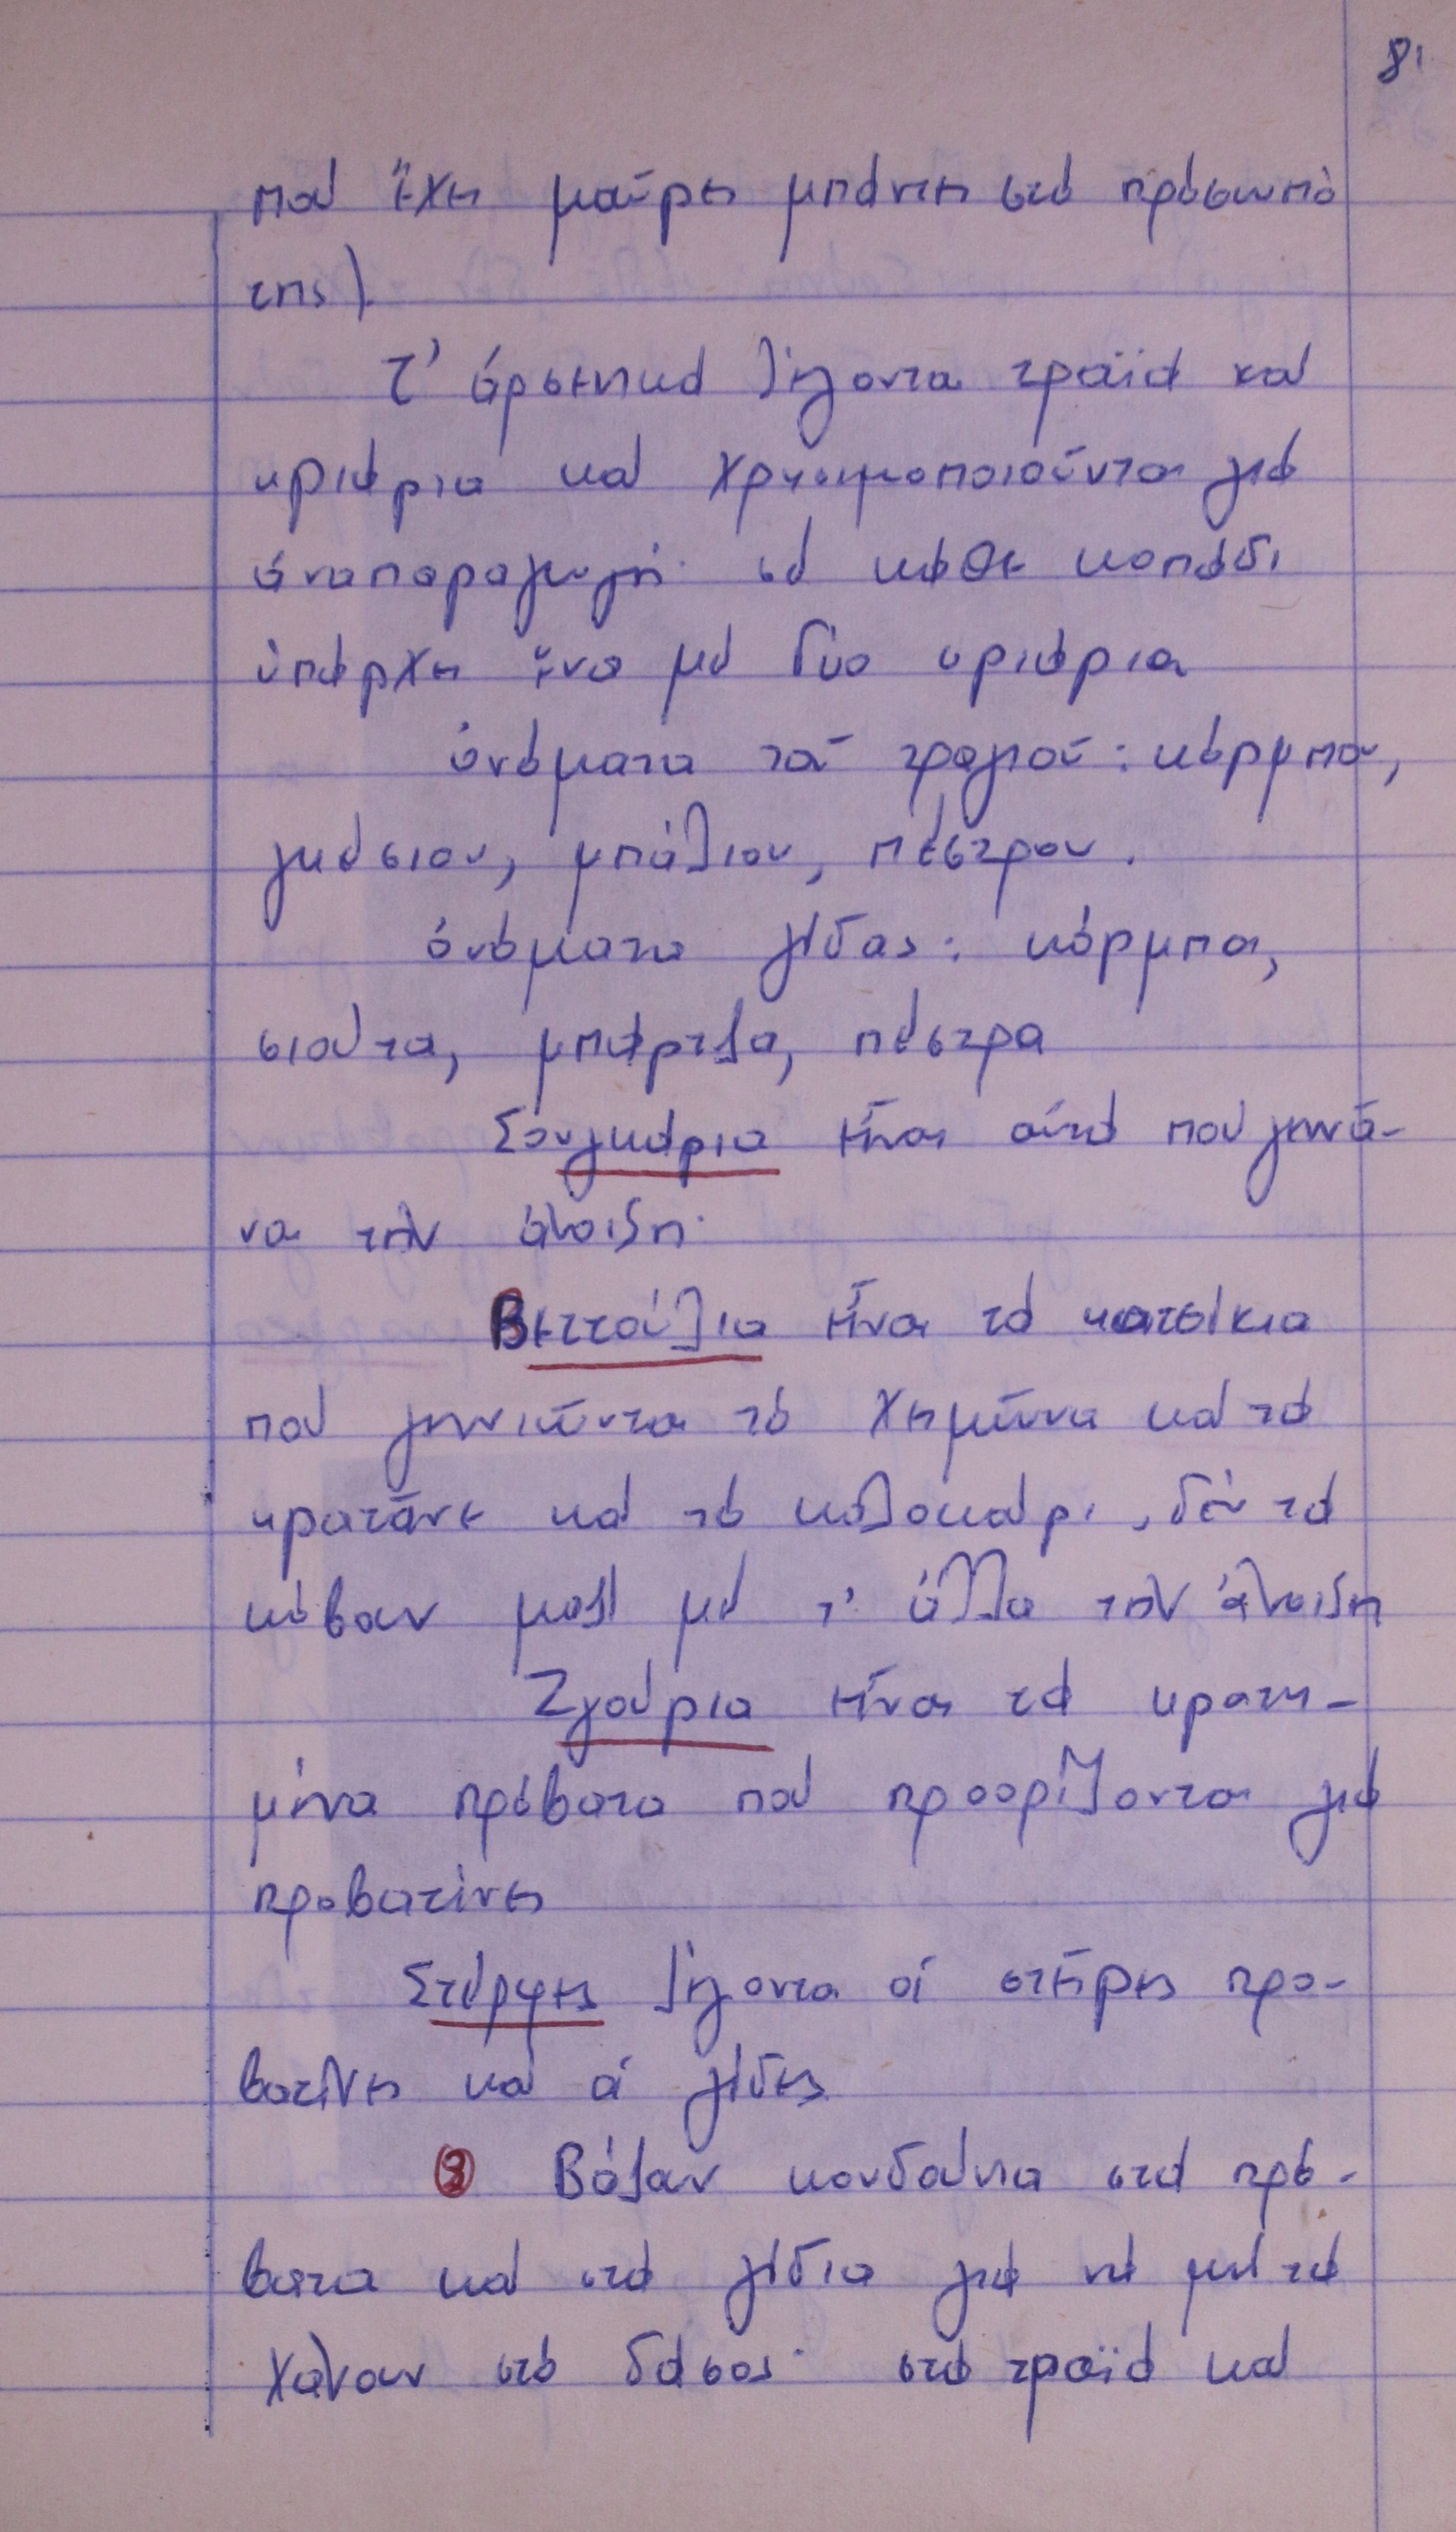 81
πού ἔχει μαῦρες μπάντες στό πρόσωπό
της)
Τ' ἀρσενικά λέγονται τραϊά καί
κριάρια καί χρησιμοποιοῦνται γιά
ἀναπαραγωγή· σέ κάθε κοπάδι
ὑπάρχει ἕνα μέ δύο κριάρια
ὀνόματα τοῦ τραγιοῦ: κόρμπου,
γκέσιου, μπάλιου, πέστρου.
ὀνόματα γίδας: κόρμπα,
σιούτα, μπάρτζα, πέστρα
Σουγκάρια εἶναι αὐτά πού γεννᾶ-
νε τήν ἄνοιξη·
Βετούλια εἶναι τά κατσίκια
πού γεννιῶνται τό χειμῶνα καί τά
κρατᾶνε καί τό καλοκαίρι, δέν τά
κόβουν μαζί μέ τ' ἄλλα τήν ἄνοιξη
Ζγούρια εἶναι τά κρατη-
μένα πρόβατα πού προορίζονται γιά
προβατίνες
Στέρφες λέγονται οἱ στεῖρες προ-
βατίνες καί οἱ γίδες
③ Βάζουν κουδούνια στά πρό-
βατα καί στά γίδια γιά νά μή τά
χάνουν στό δάσος· στά τραϊά καί